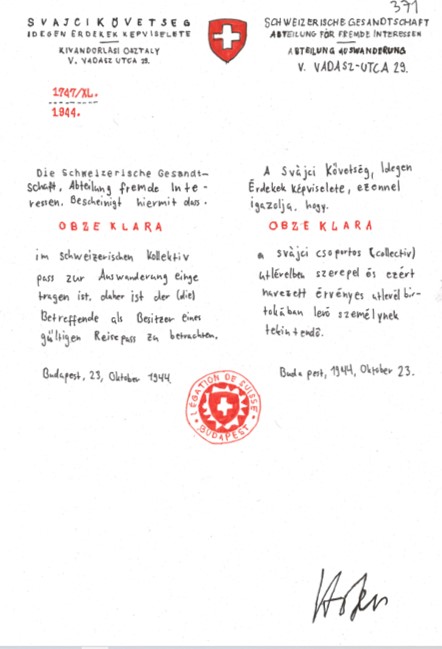 371
SVAJCI KÖVETSEG
IDEGEN ÉRDEKEK KÉPVISELETE
KIVANDORLASI OSZTALY
V. VADASZ UTCA 29.
SCHWEIZERISCHE GESANDTSCHAFT
ABTEILUNG FÖR FREMDE INTERESSEN
ABTEILUNG AUSWANDERUNG
V. VADASZ-UTCA 29.
1747/XL.
1944.
Die Schweizerische Gesandt-
schaft, Abteilung fremde Inte-
ressen, Bescheinigt hiermit dass.
OBZE KLARA
im schweizerischen Kollektiv
pass zur Auswanderung einge
tragen ist, daher ist der (die)
Betreffende als Besitzer eines
gültigen Reisepass zu betrachten.
Budapest, 23, Oktober 1944
A Svájci Követség, Idegen
Érdekek Képviselete, ezennel
igazolja, hogy.
OBZE KLARA
a svájci csoportos (collectiv)
utlévelben szerepel és ezért
nevezett érvényes utlevél bir-
tokában levő személynek
tekintendő.
Budapest, 1944, Oktober 23.
LÉGATION DE SUISSE
BUDAPEST